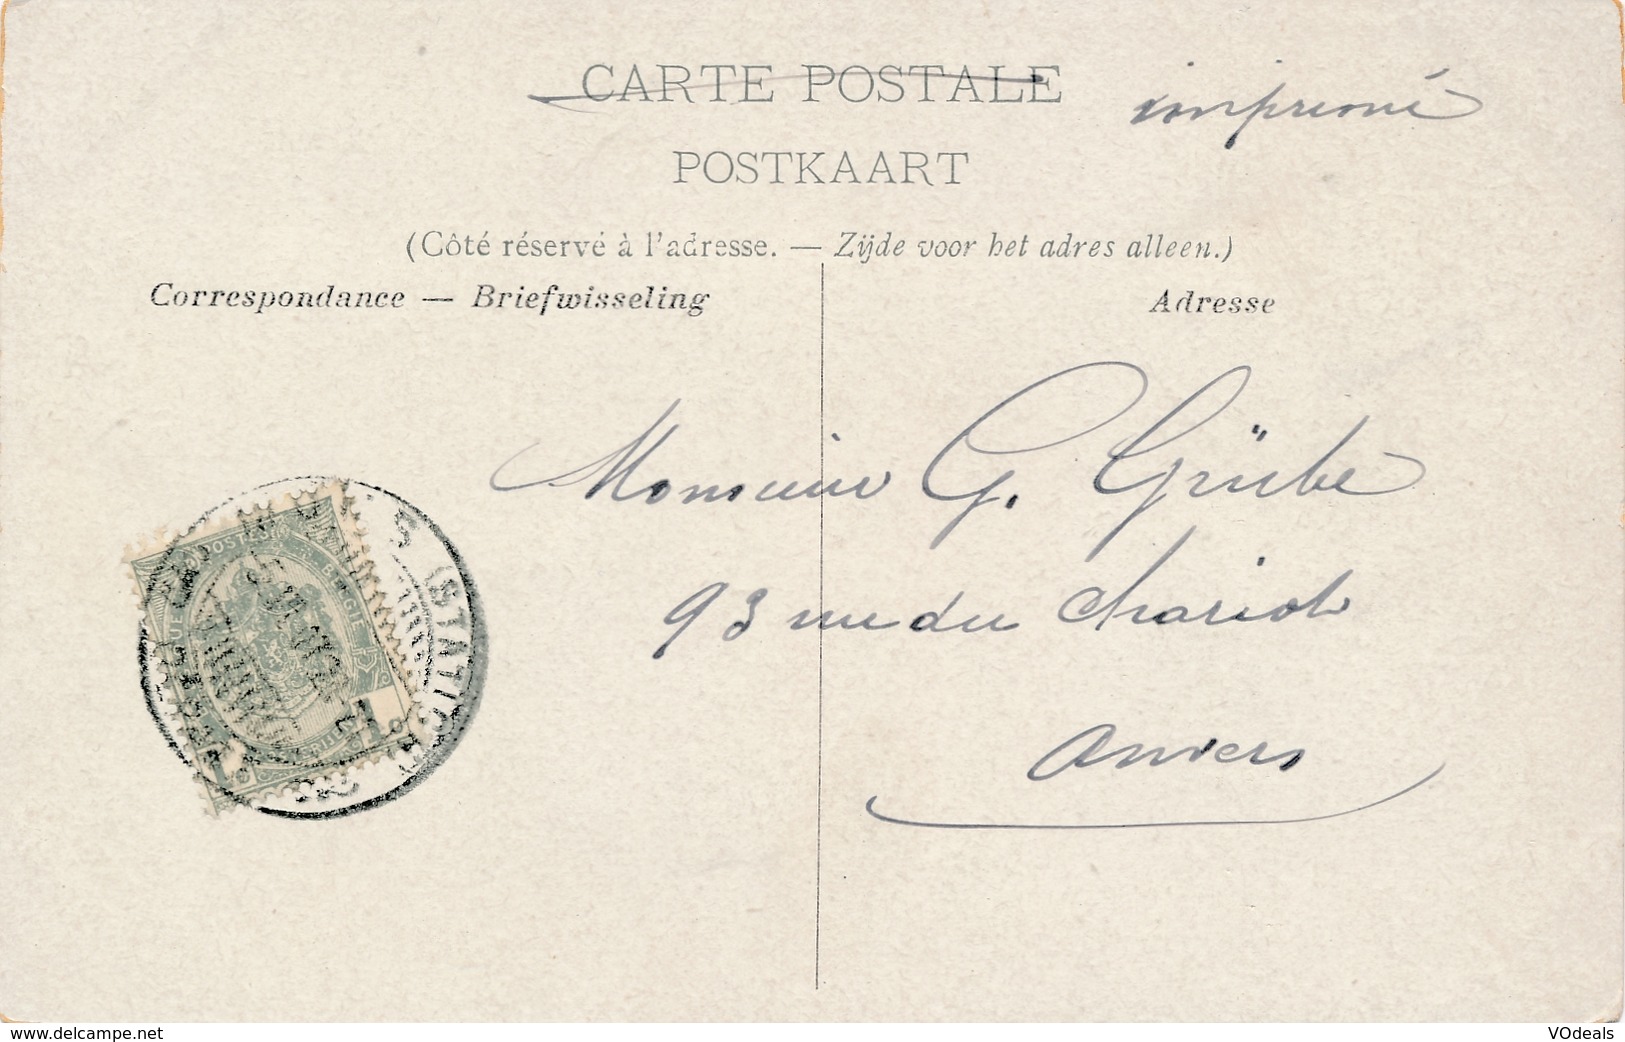 CARTE POSTALE
imprimé
POSTKAART
(Côté réservé à l'adresse. — Zijde voor het adres alleen.)
Correspondance — Briefwisseling
Adresse
Monsieur G. Grübe
93 rue du chariot
Anvers
POSTES
BELGIE
(STATION)
www.delcampe.net
VOdeals